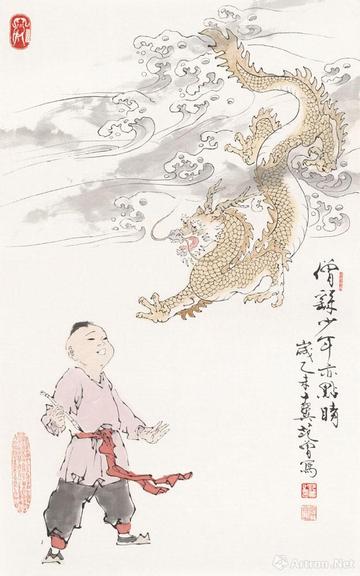 僧繇少年亦點睛
歲乙未十翼范曾寫
Artron.Net